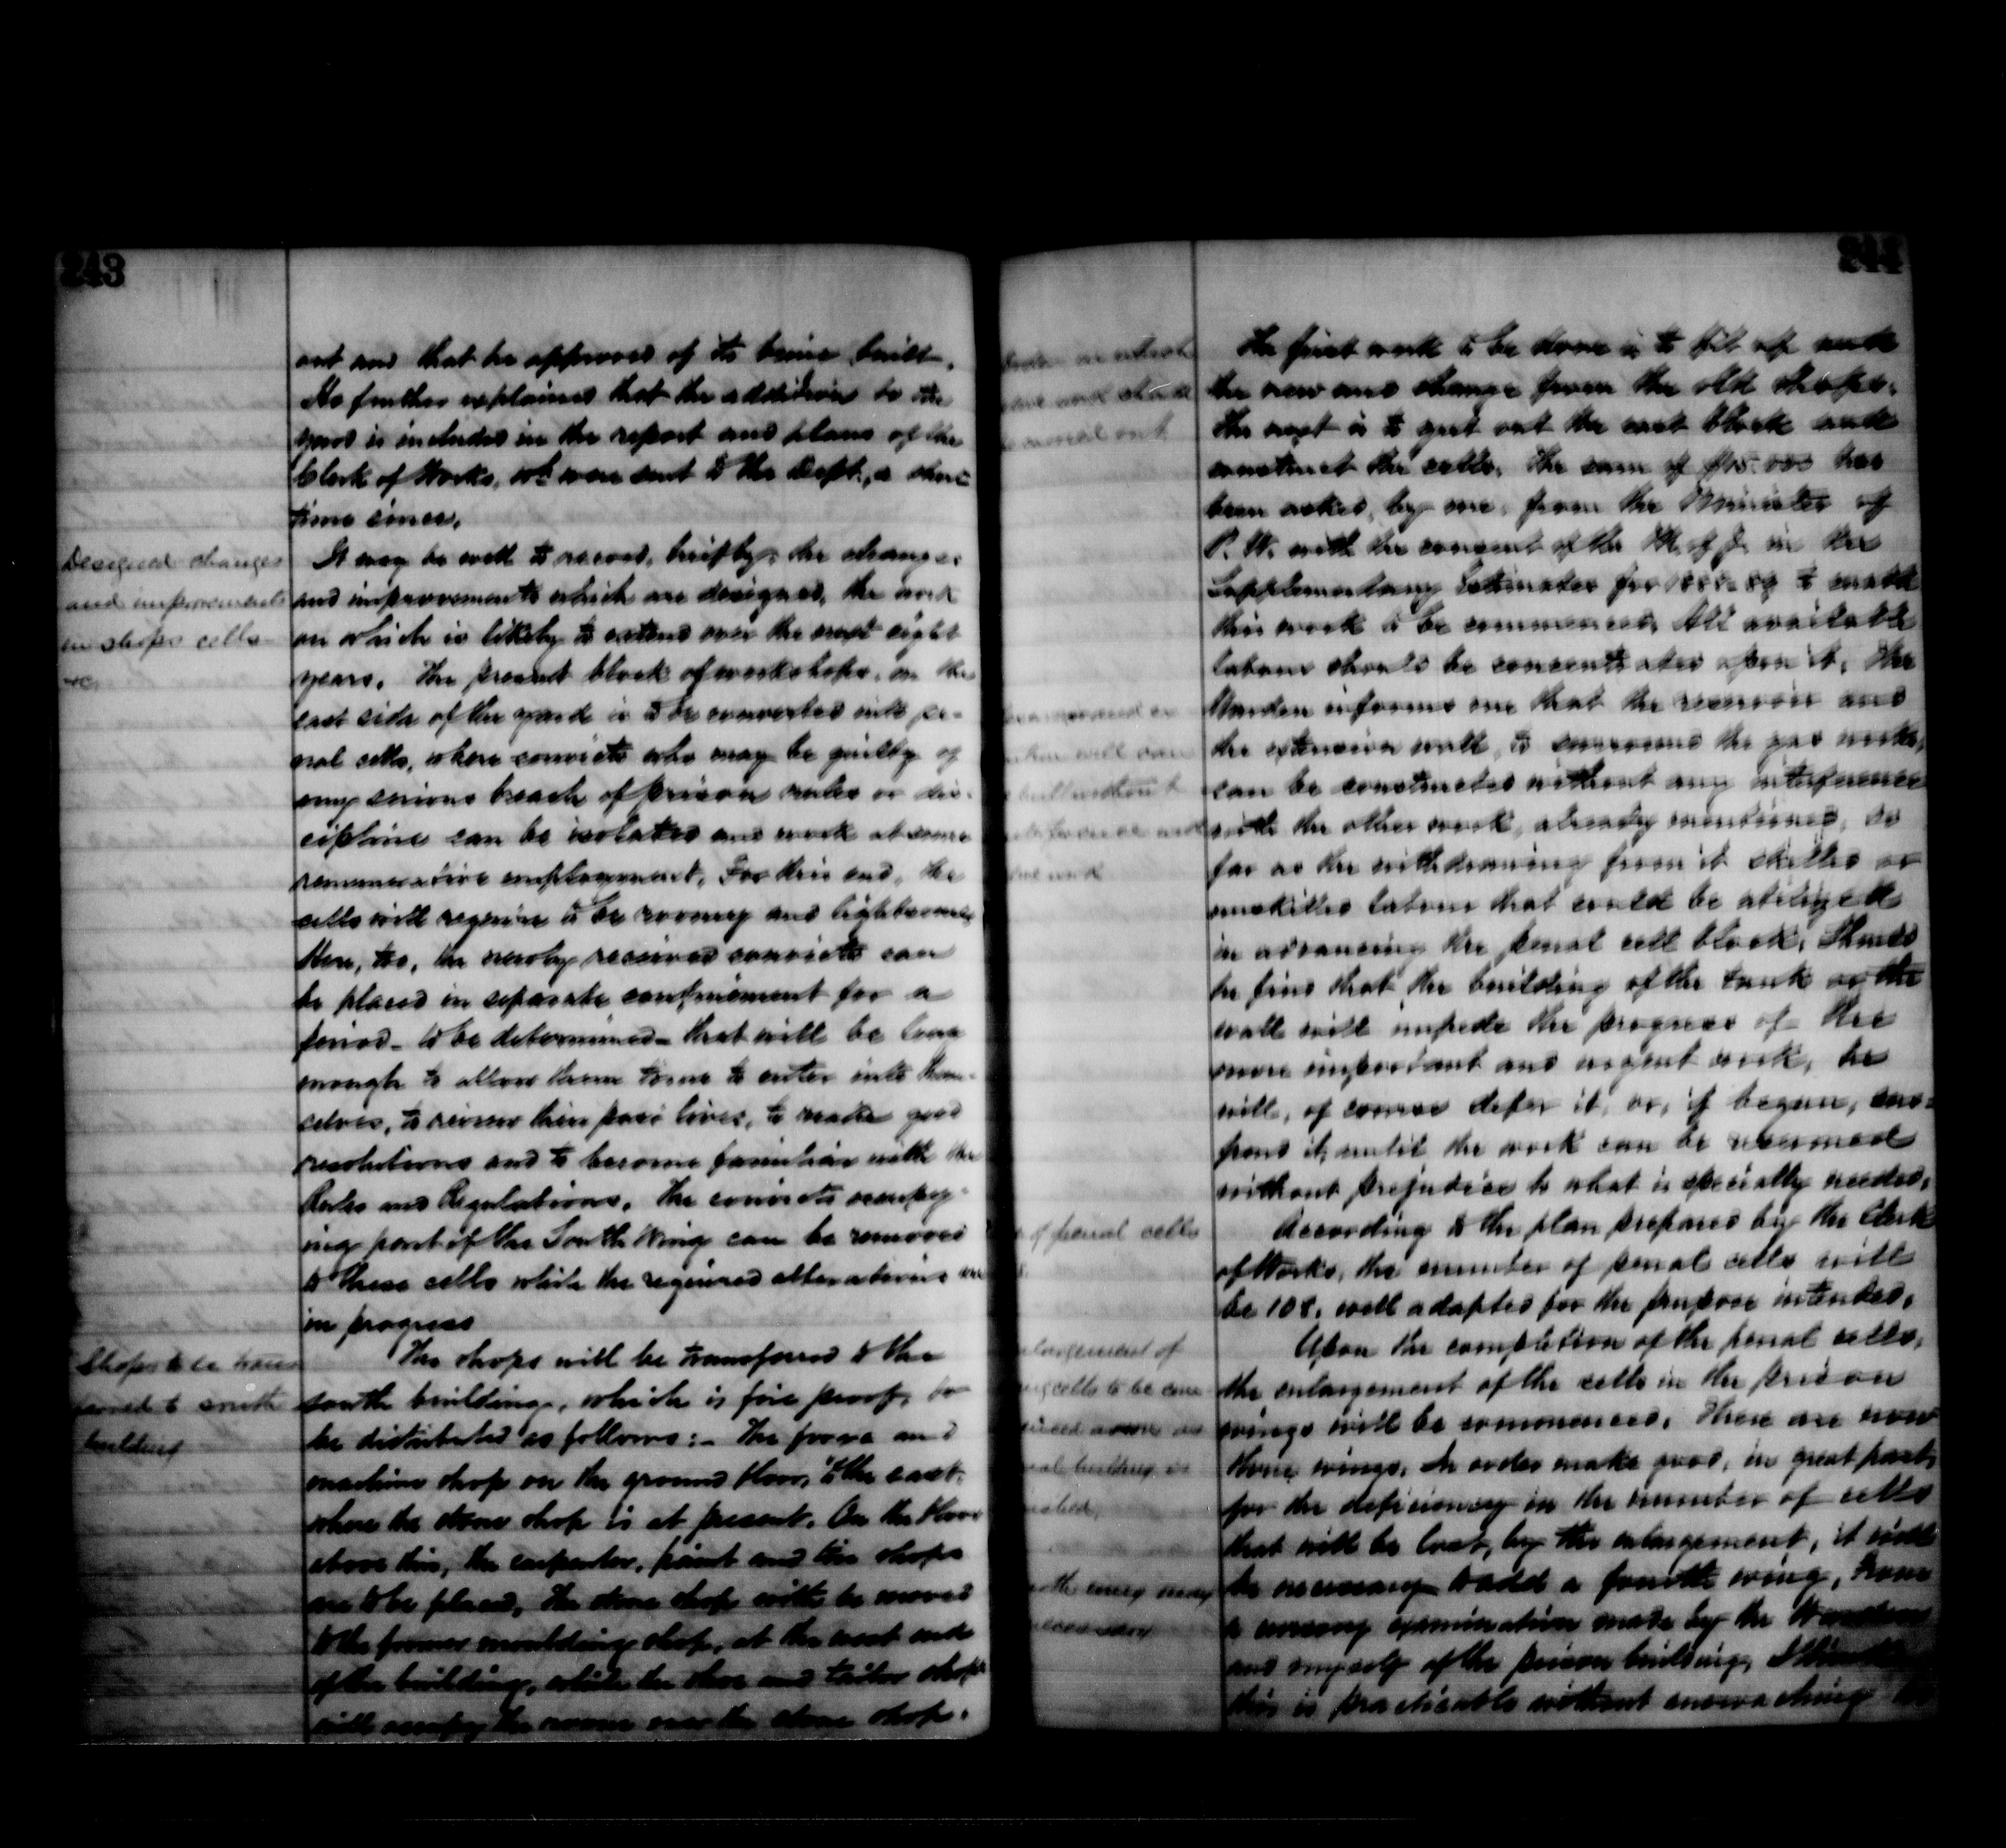 243
out and that he approved of its being built.
He further explained that the addition to the
yard is included in the report and plans of the
Clerk of Works, wh. were sent to the Dept., a short
time since.
Designed changes
and improvements
in shops cells
&c
It may be well to record, briefly, the changes
and improvements which are designed, the work
on which is likely to extend over the next eight
years. The present block of workshops, on the
east side of the yard is to be converted into pe-
nal cells, where convicts who may be guilty of
any serious breach of prison rules or dis-
cipline can be isolated and work at some
remunerative employment. For this end, the
cells will require to be roomy and lightsome.
Here, too, the newly received convicts can
be placed in separate confinement for a
period - to be determined - that will be long
enough to allow them time to enter into them-
selves, to review their past lives, to make good
resolutions and to become familiar with the
Rules and Regulations. The convicts occupy-
ing part of the South Wing can be removed
to these cells while the required alterations are
in progress
Shops to be trans
ferred to south
building
The shops will be transferred to the
south building, which is fire proof, to
be distributed as follows:- The forge and
machine shop on the ground floor, to the east,
where the stone shop is at present. On the floor
above this, the carpenter, paint and tin shops
are to be placed. The stone shop will be moved
to the former moulding shop, at the west end
of the building, while the shoe and tailor shops
will occupy the rooms over the stone shop.
244
The first work to be done is to fit up
the new and change from the old shops.
The next is to gut out the east block and
construct the cells. The sum of has
been asked, by me, from the Minister of
P. W. with the consent of the M. of J. in the
Supplementary Estimates for 1888-89 to enable
this work to be commenced. All available
labour should be concentrated upon it. The
Warden informs me that the reservoir and
the extension wall, to surround the gas works,
can be constructed without any interference
with the other work, already mentioned, so
far as the withdrawing from it skilled or
unskilled labour that could be utilized
in advancing the penal cell block. Should
he find that the building of the tank or the
wall will impede the progress of the
more important and urgent work, he
will, of course defer it, or, if begun, sus-
pend it, until the work can be resumed
without prejudice to what is specially needed.
of penal cells
According to the plan prepared by the Clerk
of Works, the number of penal cells will
be 108, well adapted for the purpose intended.
largement of
cells to be com
Upon the completion of the penal cells,
the enlargement of the cells in the prison
wings will be commenced. There are now
three wings. In order make good, in great part,
for the deficiency in the number of cells
that will be lost, by the enlargement, it will
be necessary to add a fourth wing. From
a cursory examination made by the Warden
and myself of the prison building, I think
this is practicable without encroaching